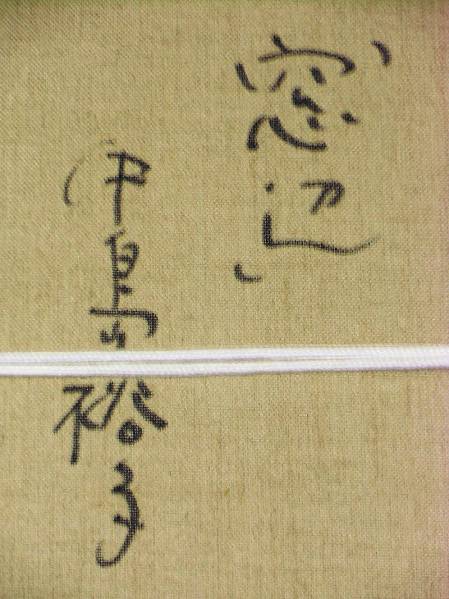 「窓辺」
中島裕子